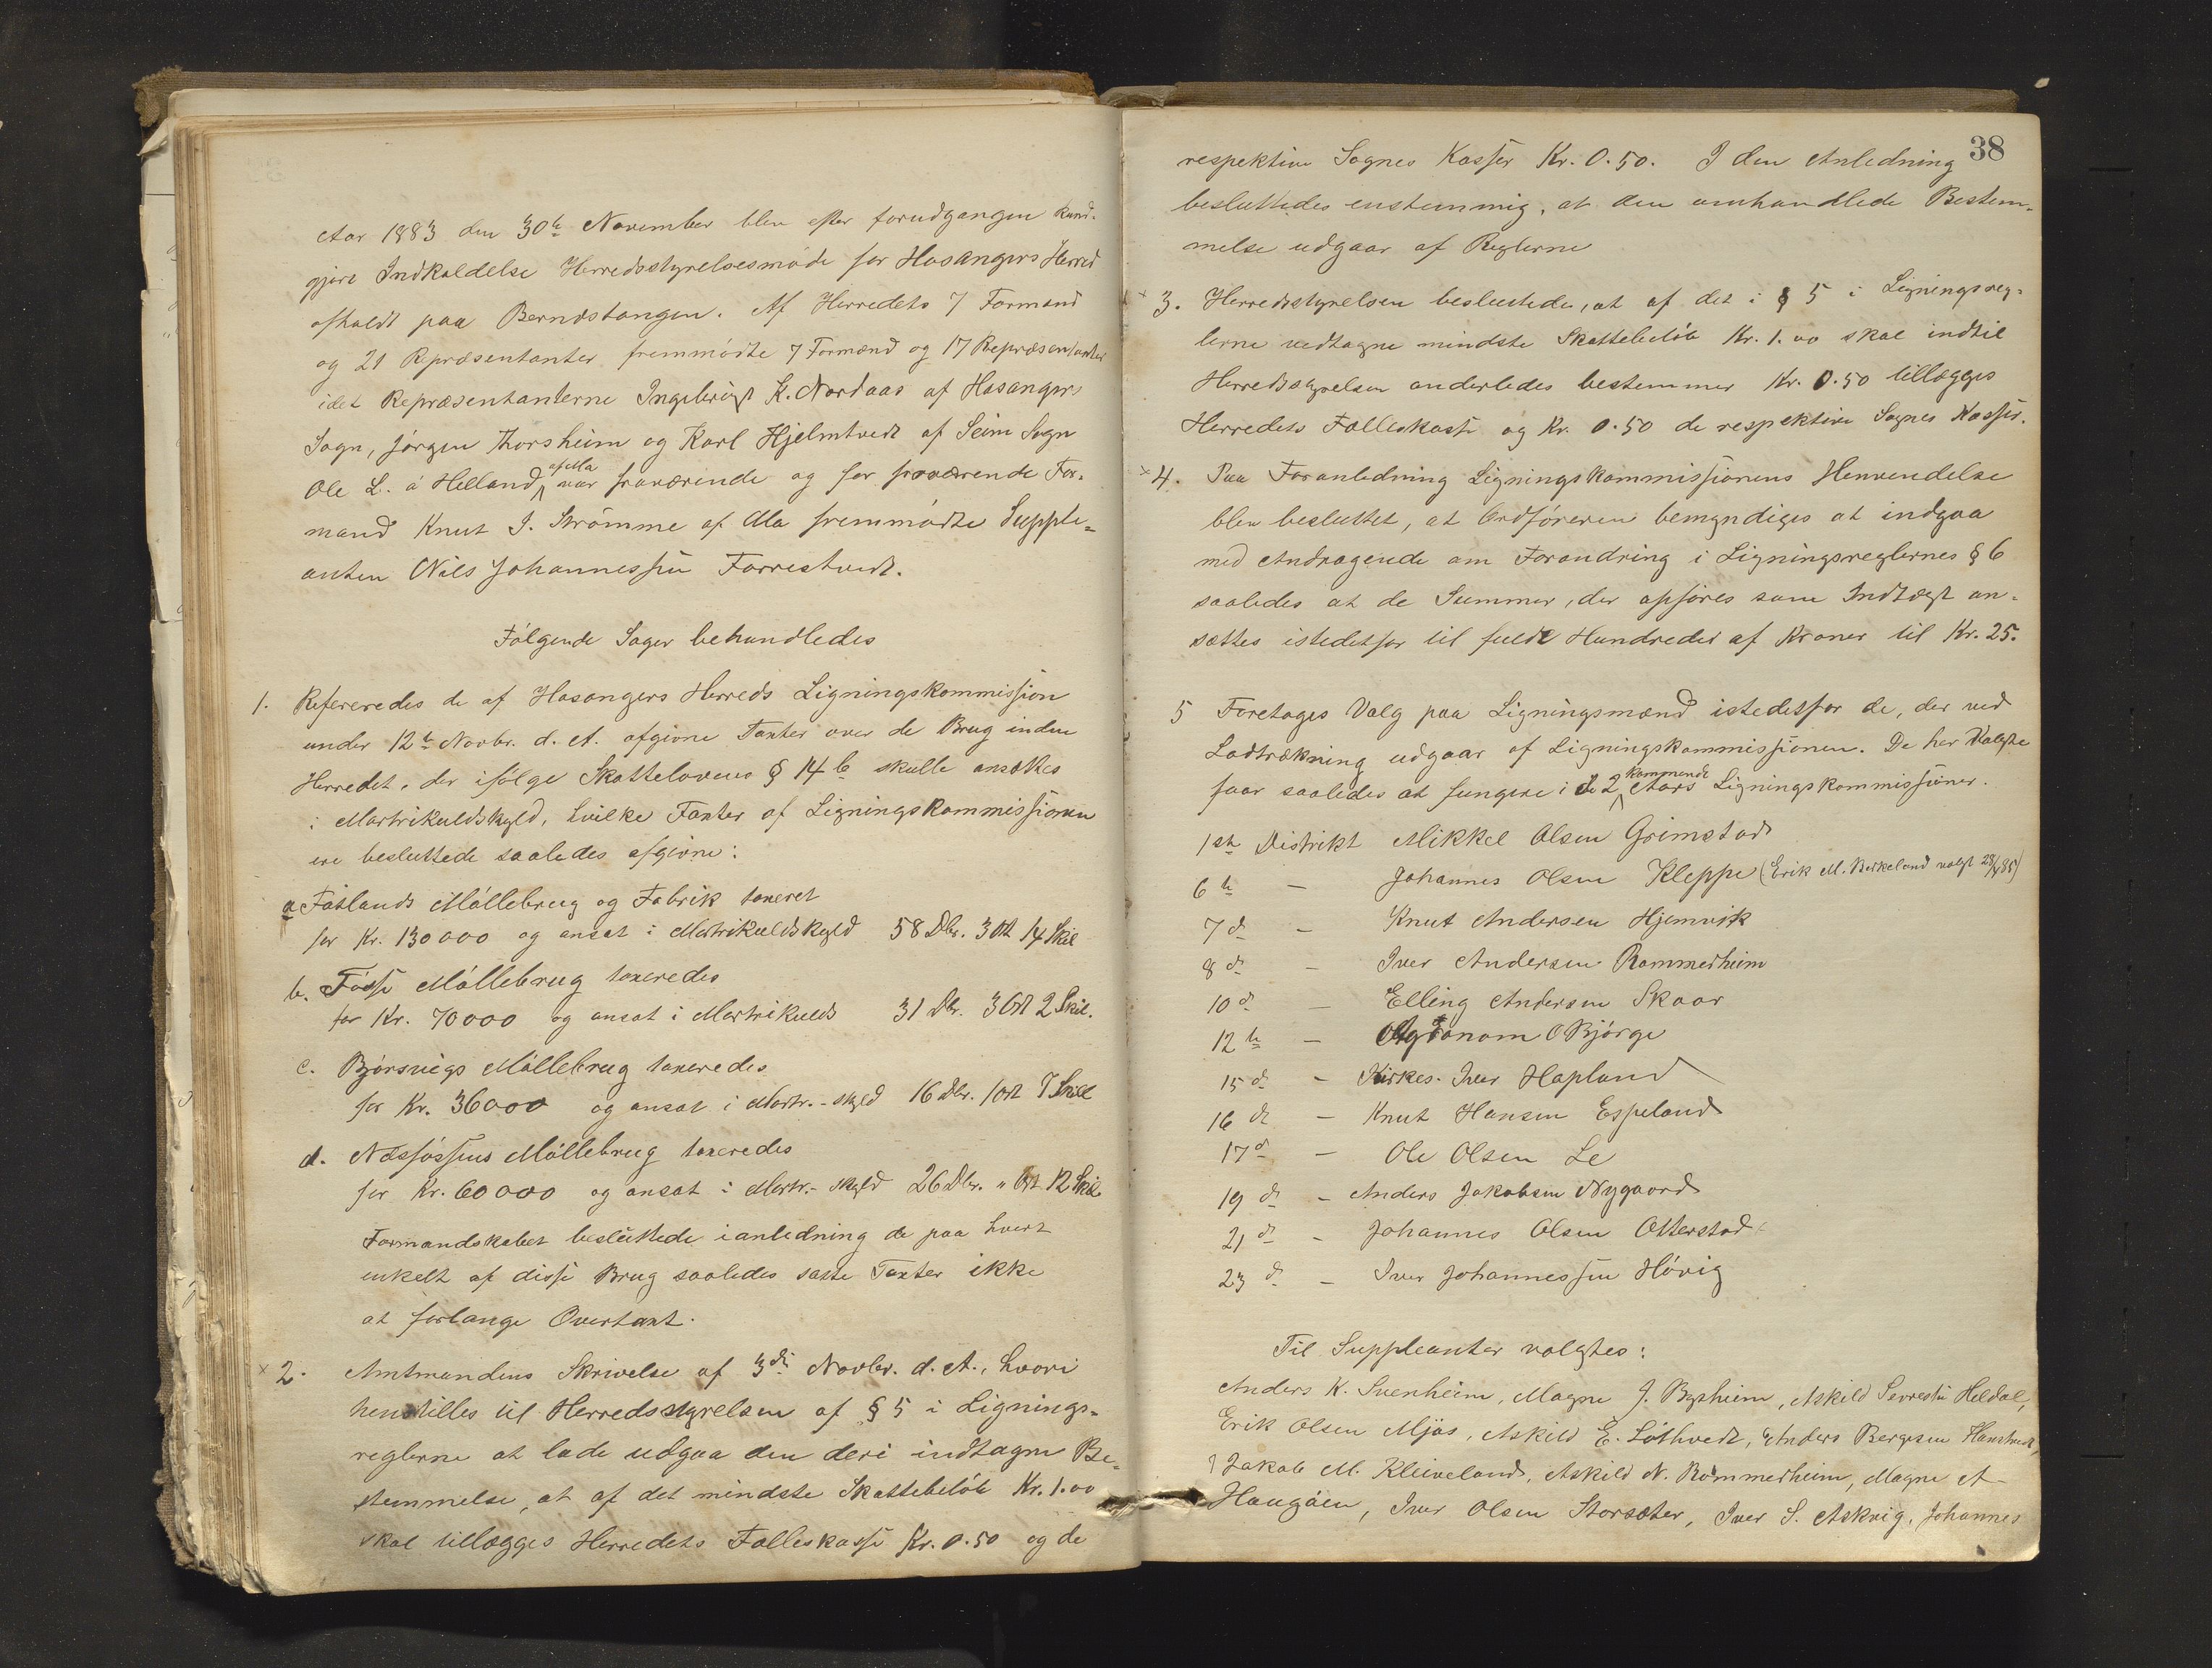 Aar 1883 den 30te November blev efter forudgangen kund-
gjort Indkaldelse Herredsstyrelsesmøde for Hosangers Herred
afholdt paa Berndstangen. Af Herredets 7 Formænd
og 21 Repræsentanter fremmødte 7 Formænd og 17 Repræsentanter
idet Repræsentanterne Ingebrigt K. Nordaas af Hosangers
Sogn, Jørgen Thorsheim og Karl Hjelmtvedt af Seim Sogn
Ole L. ø Helland af Mo var fraværende og for fraværende For-
mand Knut I. Strømme af Mo fremmødte Supple-
anten Nils Johannessen Forrestvedt.
Følgende Sager behandledes
1. Refereredes de af Hosangers Herreds Ligningskommission
under 12te Novbr. d. A. afgivne Taxter over de Brug inden
Herredet, der ifølge Skattelovens § 14 b skulle ansættes
i Martrikulskyld, hvilke Taxter af Ligningskommissionen
ere besluttede saaledes afgivne:
a Fotlands Møllebrug og Fabrik taxeret
for Kr. 130000 og ansat i Martrikulskyld 58 Dlr. 3 Ort 14 Skil
b. Fosse Møllebrug taxeredes
for Kr. 70000 og ansat i Martrikuls 31 Dlr. 3 Ort 2 Skil.
c. Bjørsvigs Møllebrug taxeredes
for Kr. 36000 og ansat i Martr.-skyld 16 Dlr. 1 Ort 7 Skill
d. Næsfossens Møllebrug taxeredes
for Kr. 60000 og ansat i Martr.-skyld 26 Dlr. " Ort 12 Skil
Formandskabet besluttede i anledning de paa hvert
enkelt af disse Brug saaledes satte Taxter ikke
at forlange Overtaxt.
× 2. Amtmandens Skrivelse af 3die Novbr. d. A., hvori
henstilles til Herredsstyrelsen af § 5 i Lignings-
reglerne at lade udgaa den deri indtagne Be-
stemmelse, at af det mindste Skattebeløb Kr. 1.00
skal tillægges Herredets Fælleskasse Kr. 0.50 og de
38
respektive Sognes Kasser Kr. 0.50. I den Anledning
besluttedes enstemmig, at den omhandlede Bestem-
melse udgaar af Reglerne
× 3. Herredsstyrelsen besluttede, at af det i § 5 i Ligningsreg-
lerne vedtagne mindste Skattebeløb Kr. 1.00 skal indtil
Herredsstyrelsen anderledes bestemmer Kr. 0.50 tillægges
Herredets Fælleskasse og Kr. 0.50 de respektive Sognes Kasser.
× 4. Paa Foranledning Ligningskommissionens Henvendelse
blev besluttet, at Ordføreren bemyndiges at indgaa
med Andragende om Forandring i Ligningsreglernes § 6
saaledes at de Summer, der opføres som Indtægt an-
sættes istedetfor til fulde Hundreder af Kroner til Kr. 25.
5 Foretages Valg paa Ligningsmænd istedetfor de, der ved
Lodtrækning udgaar af Ligningskommissionen. De her Valgte
faar saaledes at fungere i de 2 kommende Aars Ligningskommissioner.
1ste Distrikt Mikkel Olsen Grimstad
6te – Johannes Olsen Kleppe (Erik M. Birkeland valgt 28/ 85)
7 d – Knut Andersen Hjemvik
8 d – Iver Andersen Rommerheim
10 d – Elling Andersen Skaar
12te – Agronom O Bjørge
15 d – Kirkes. Iver Hopland
16 d – Knut Hansen Espeland
17 d – Ole Olsen Le
19 d – Anders Jakobsen Nygaard
21 d – Johannes Olsen Otterstad
23 d – Iver Johannessen Høvig
Til Suppleanter valgtes:
Anders K. Svenheim, Magne J. Bysheim, Askild Sevrestu Heldal,
Erik Olsen Mjøs, Askild E. Lothvedt, Anders Bergesen Hanstvedt,
Jakob M. Kleiveland, Askild N. Rommerheim, Magne A
Haugøen, Iver Olsen Storsæter, Iver S. Askvig, Johannes